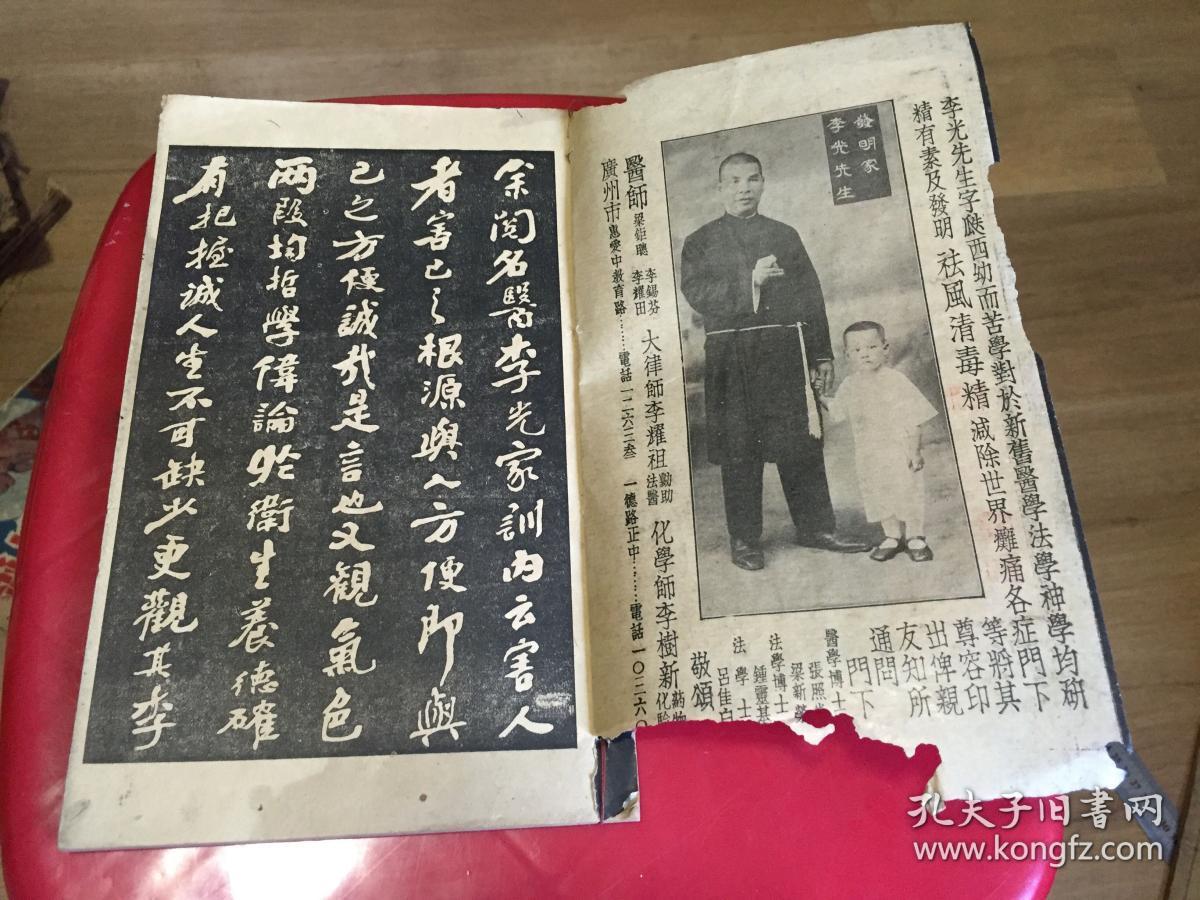 李光先生字彂西幼而苦學對於新舊醫學法學神學均研
精有素及發明 祛風清毒精 減除世界癱痛各症門下
等將其
尊容印
出俾親
友知所
通問
門下
發明家
李光先生
醫學博士
張熙
梁新
法學博士
鍾靈基
法學士
呂佳白
敬頌
醫師 梁鉅聰 李錫芬 李耀田 大律師李耀祖 勷助法醫 化學師李樹新 藥物化驗
廣州市惠愛中教育路……電話一二六三叁 一德路正中……電話一〇三二六〇
余閱名醫李光家訓內云害人
者害己之根源與人方便即與
己之方便誠哉是言也又觀氣色
两段均哲學偉論於衛生養德確
有把握誠人生不可缺少更觀其李
孔夫子旧书网
www.kongfz.com